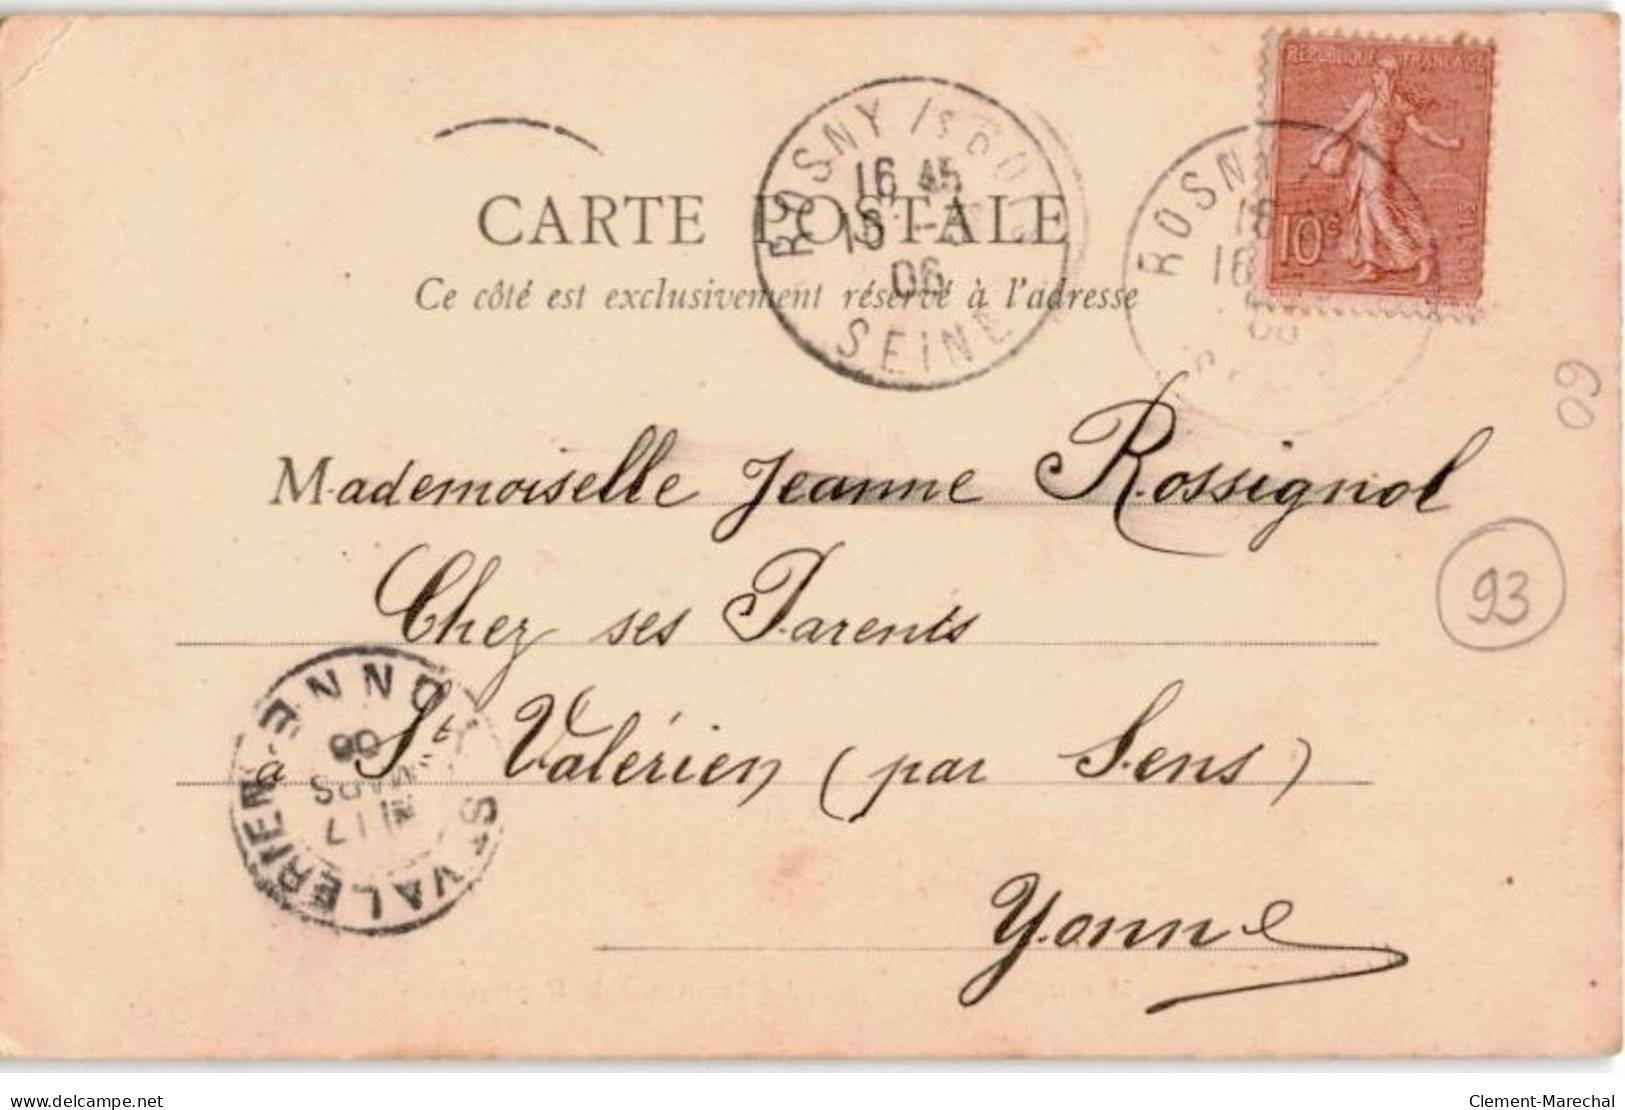 RÉPUBLIQUE FRANÇAISE
10c
POSTES
ROSNY /s BOIS
16 45
16 -3
06
SEINE
ROSN
16
CARTE POSTALE
Ce côté est exclusivement réservé à l'adresse
60
Mademoiselle Jeanne Rossignol
Chez ses Parents
93
à St Valérien (par Sens)
Yonne
ST VALERIEN
YONNE
17
MARS
06
delcampe.net
Clement-Marechal